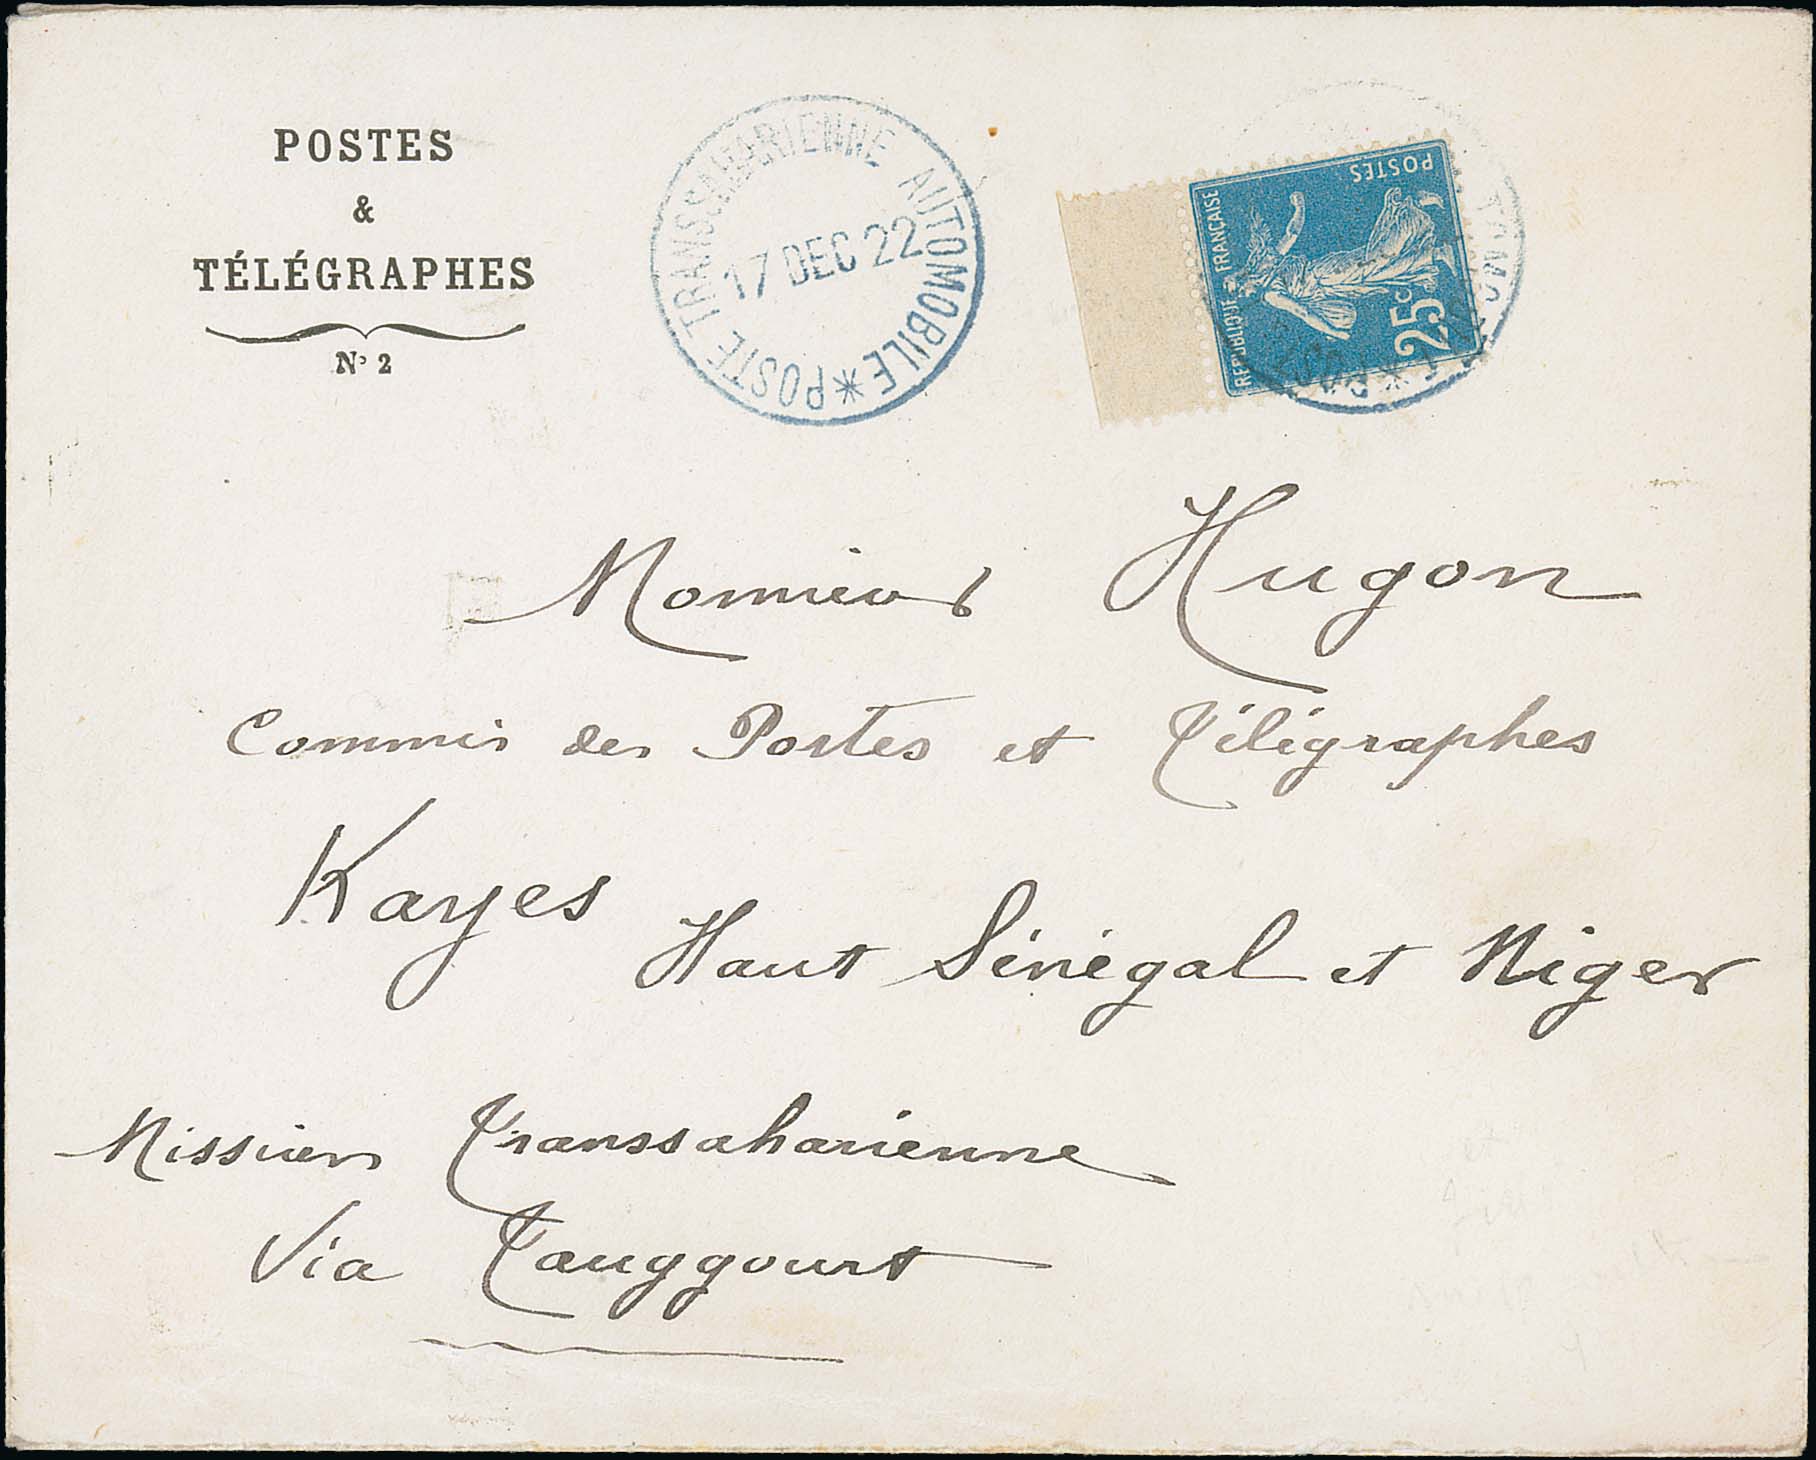 POSTES
&
TÉLÉGRAPHES
Nº 2
POSTE TRANSSAHARIENNE AUTOMOBILE *
17 DEC 22
REPUBLIQUE FRANÇAISE
POSTES
25c
Monsieur Hugon
Commis des Postes et Télégraphes
Kayes
Haut Sénégal et Niger
Mission Transsaharienne
Via Touggourt